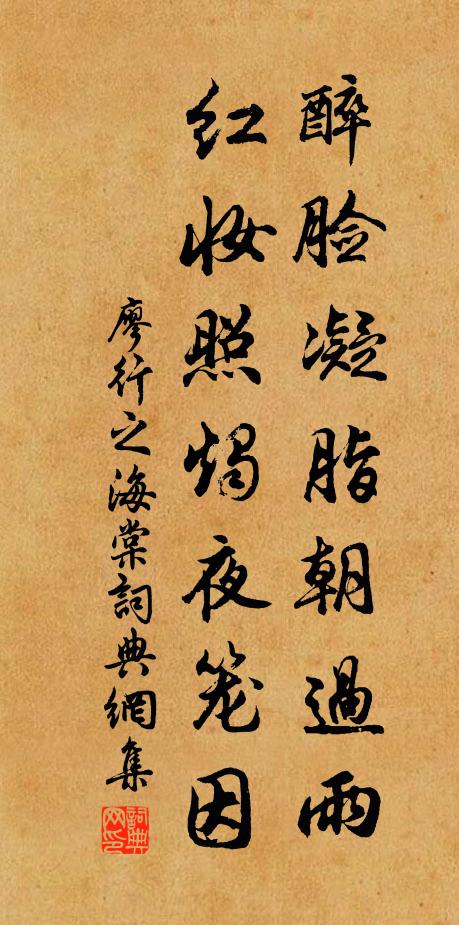 醉脸凝脂朝過雨
红妆照烛夜笼因
廖行之海棠詞典網集
詞典网印